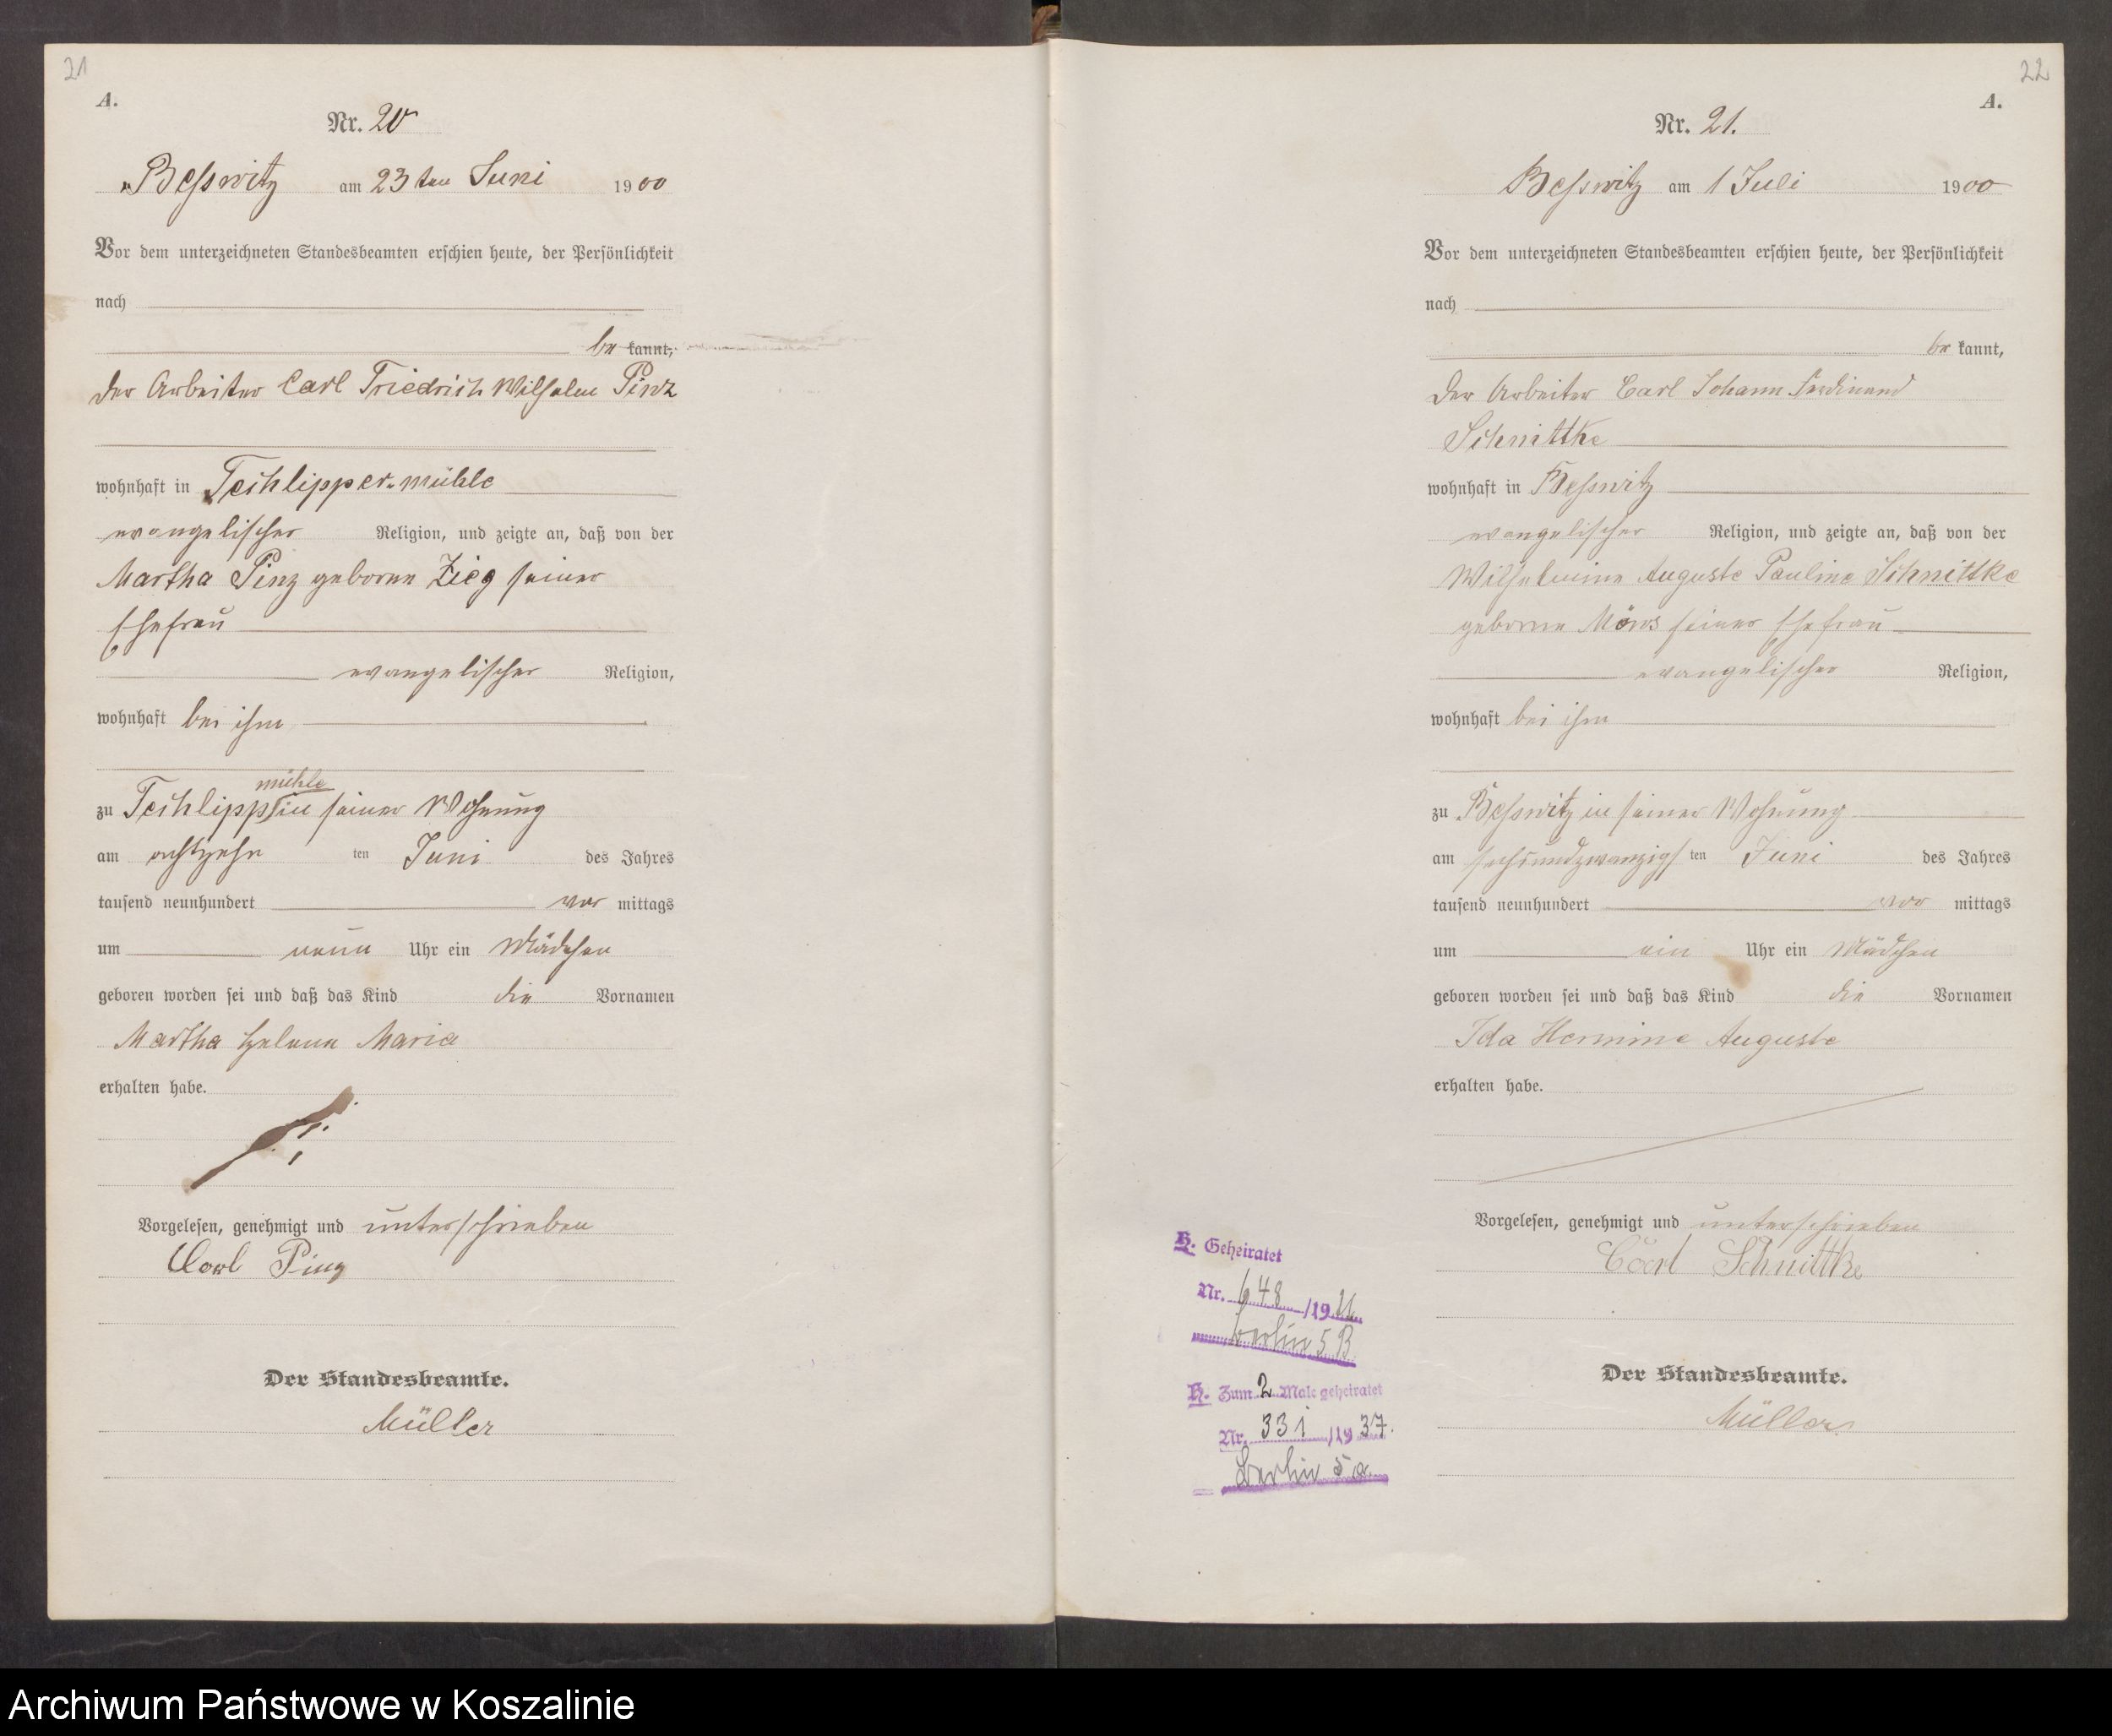 21
A.
Nr. 20
Beßwitz am 23ten Juni 1900
Vor dem unterzeichneten Standesbeamten erschien heute, der Persönlichkeit
nach
be kannt,
der Arbeiter Carl Friedrich Wilhelm Pinz
wohnhaft in Techlipper-mühle
evangelischer Religion, und zeigte an, daß von der
Martha Pinz geborene Zieg seiner
Ehefrau
evangelischer Religion,
wohnhaft bei ihm
mühle
zu Techlipp in seiner Wohnung
am achtzehn ten Juni des Jahres
tausend neunhundert vor mittags
um neun Uhr ein Mädchen
geboren worden sei und daß das Kind die Vornamen
Martha Helene Maria
erhalten habe.
Vorgelesen, genehmigt und unterschrieben
Carl Pinz
Der Standesbeamte.
Müller
22
A.
Nr. 21.
Beßwitz am 1 Juli 1900
Vor dem unterzeichneten Standesbeamten erschien heute, der Persönlichkeit
nach
be kannt,
der Arbeiter Carl Johann Ferdinand
Schnittke
wohnhaft in Beßwitz
evangelischer Religion, und zeigte an, daß von der
Wilhelmine Auguste Pauline Schnittke
geborene Möws seiner Ehefrau
evangelischer Religion,
wohnhaft bei ihm
zu Beßwitz in seiner Wohnung
am sechsundzwanzigs ten Juni des Jahres
tausend neunhundert vor mittags
um ein Uhr ein Mädchen
geboren worden sei und daß das Kind die Vornamen
Ida Hermine Auguste
erhalten habe.
Vorgelesen, genehmigt und unterschrieben
Carl Schnittke
Der Standesbeamte.
Müller
H. Geheiratet
Nr. 648 /19
Berlin 5 B
H. Zum 2 Male geheiratet
Nr. 331 /1937.
Berlin 5a
Archiwum Państwowe w Koszalinie